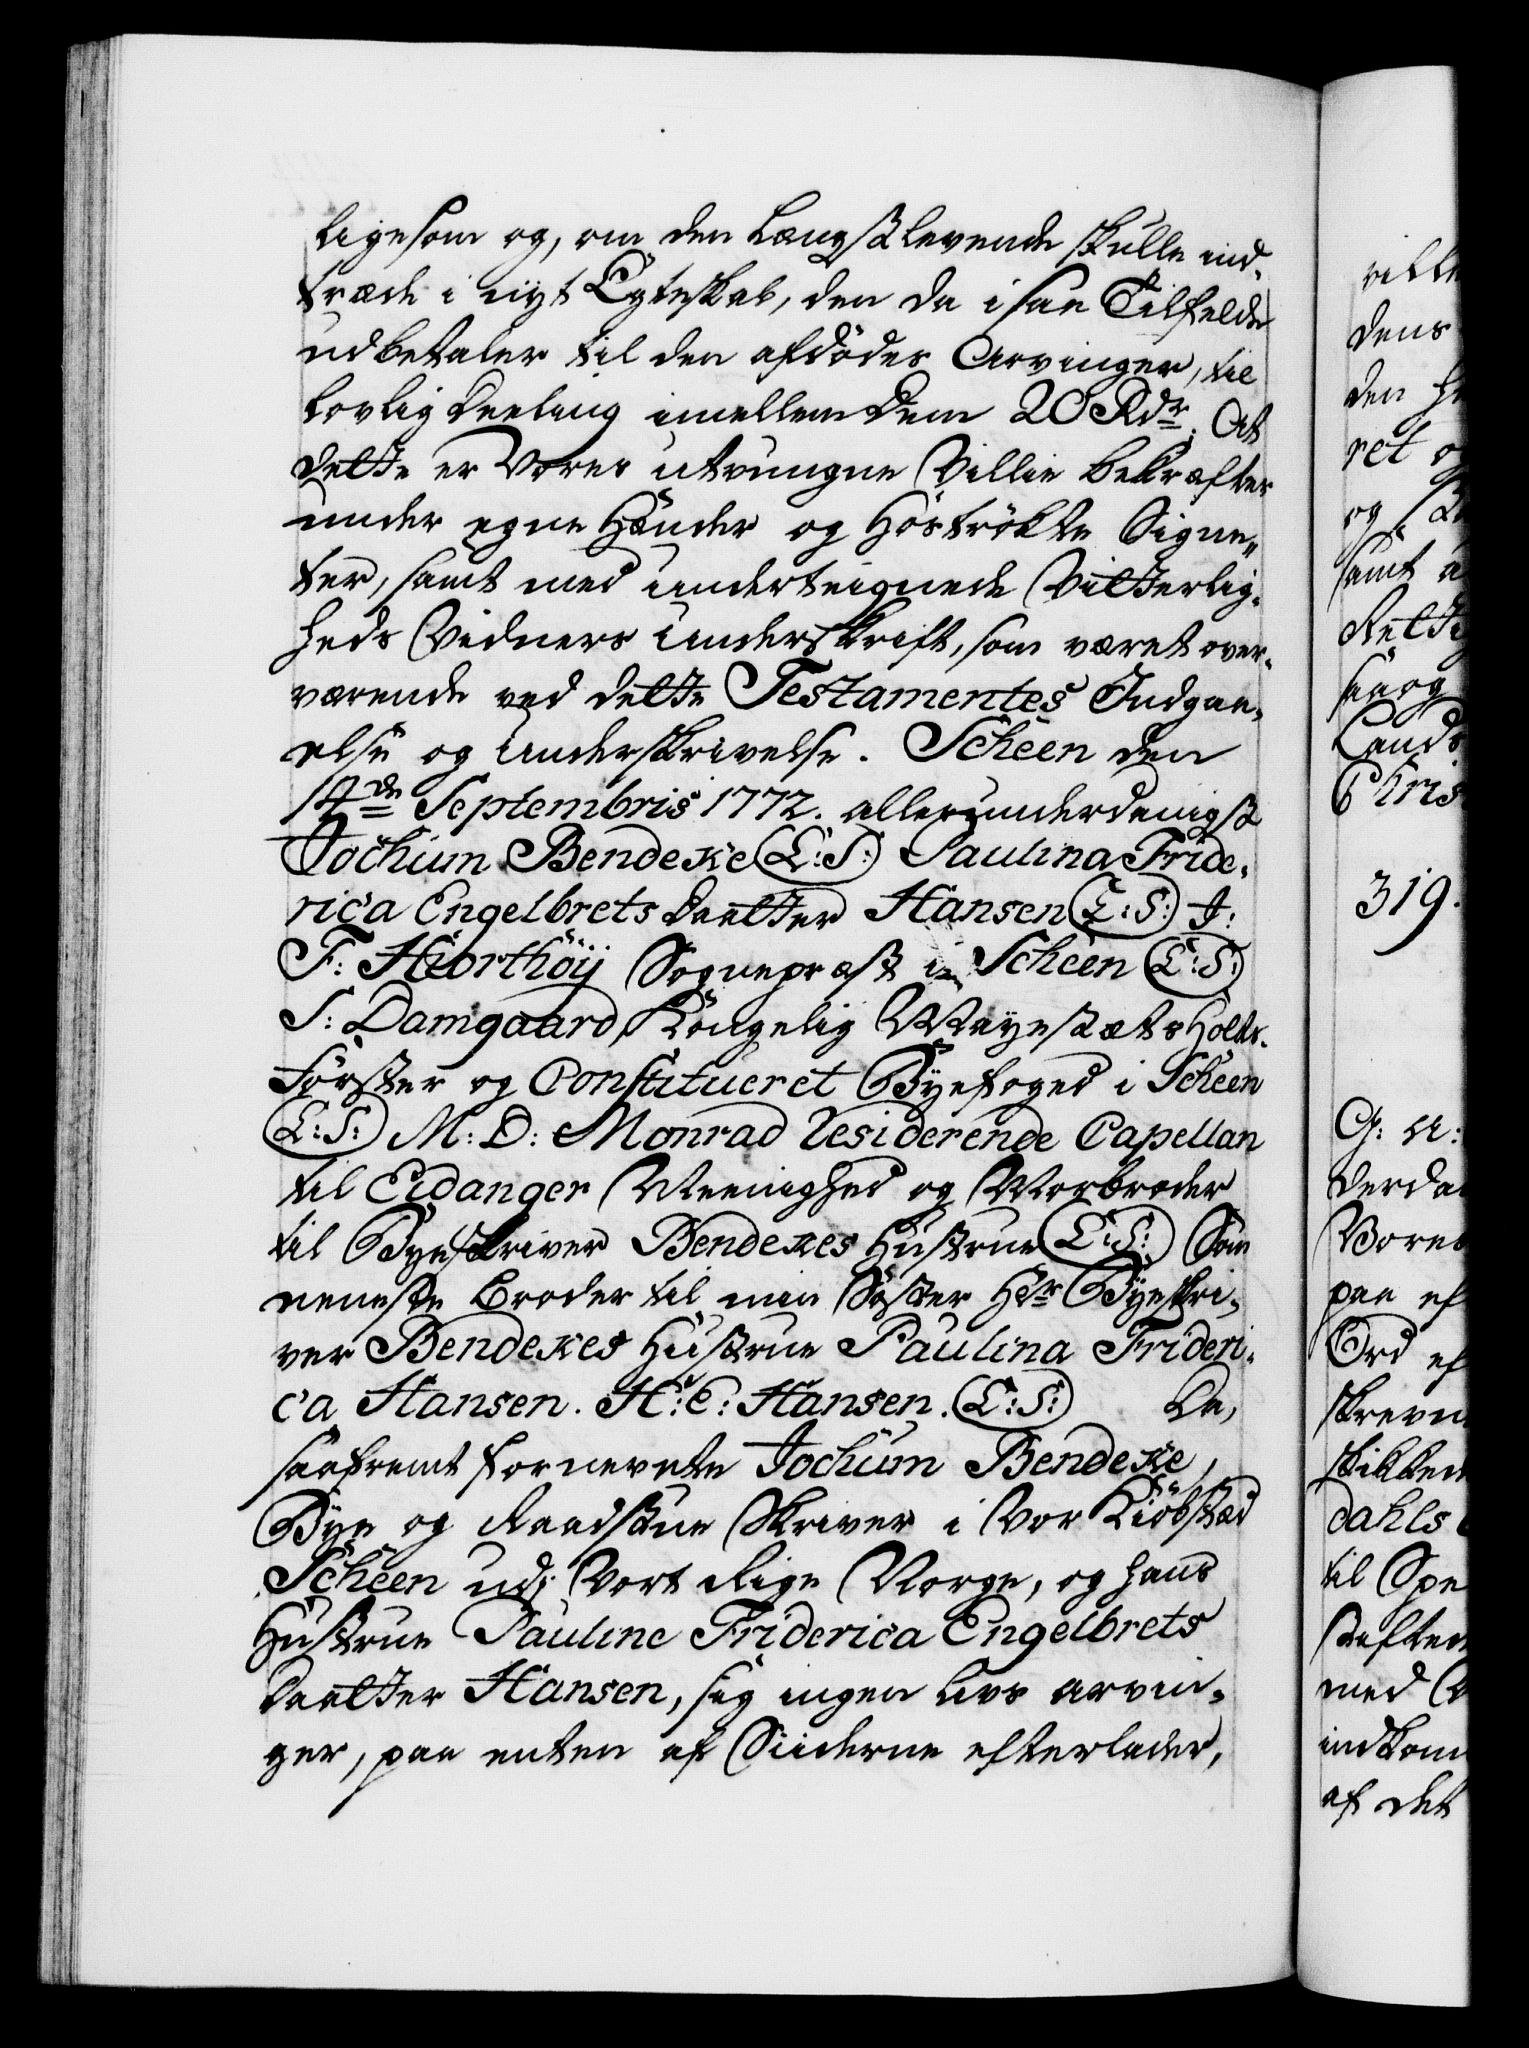 ligesom og, om den Længstlevende skulle ind-
træde i nyt Egteskab, den da i saa Tilfelde
udbetaler til den afdödes Arvinger, til
lovlig Deeling imellem dem 20 Rdr. At
dette er Vores utvungne Villie bekræfter
under egne Hænder og hoströkte Signe-
ter, samt med underteignede Vitterlig-
heds Vidners Underskrift, som været over-
værende ved dette Testamentes Indgaa-
else og Underskrivelse. Scheen den
14de Septembris 1772. allerunderdanigst
Jochum Bendeke (L:S:) Paulina Fride-
rica Engelbrets Daatter Hansen (L:S:) J:
F: Hiorthöÿ Sognepræst i Scheen (L:S:)
S: Damgaard, Kongelig Mayestæts Holtz-
Förster og Constitueret Byefoged i Scheen
(L:S:) M: D: Monrad Residerende Capellan
til Eidanger Meenighed og Morbroder
til Byeskriver Bendekes Hustrue (L:S:) Som
eeneste Broder til min Söster Hr Byeskri-
ver Bendekes Hustrue Paulina Frideri-
ca Hansen. H: C: Hansen. (L:S:) Da,
saafremt fornevnte Jochum Bendeke,
Bye og Raadstue Skriver i Vor Kiöbstæd
Scheen udi Vort Rige Norge, og hans
Hustrue Pauline Friderica Engelbrets
Daatter Hansen, sig ingen Livs arvin-
ger, paa enten af Siiderne efterlader,
dens
319.
G: A:
dahls
til
med
af det